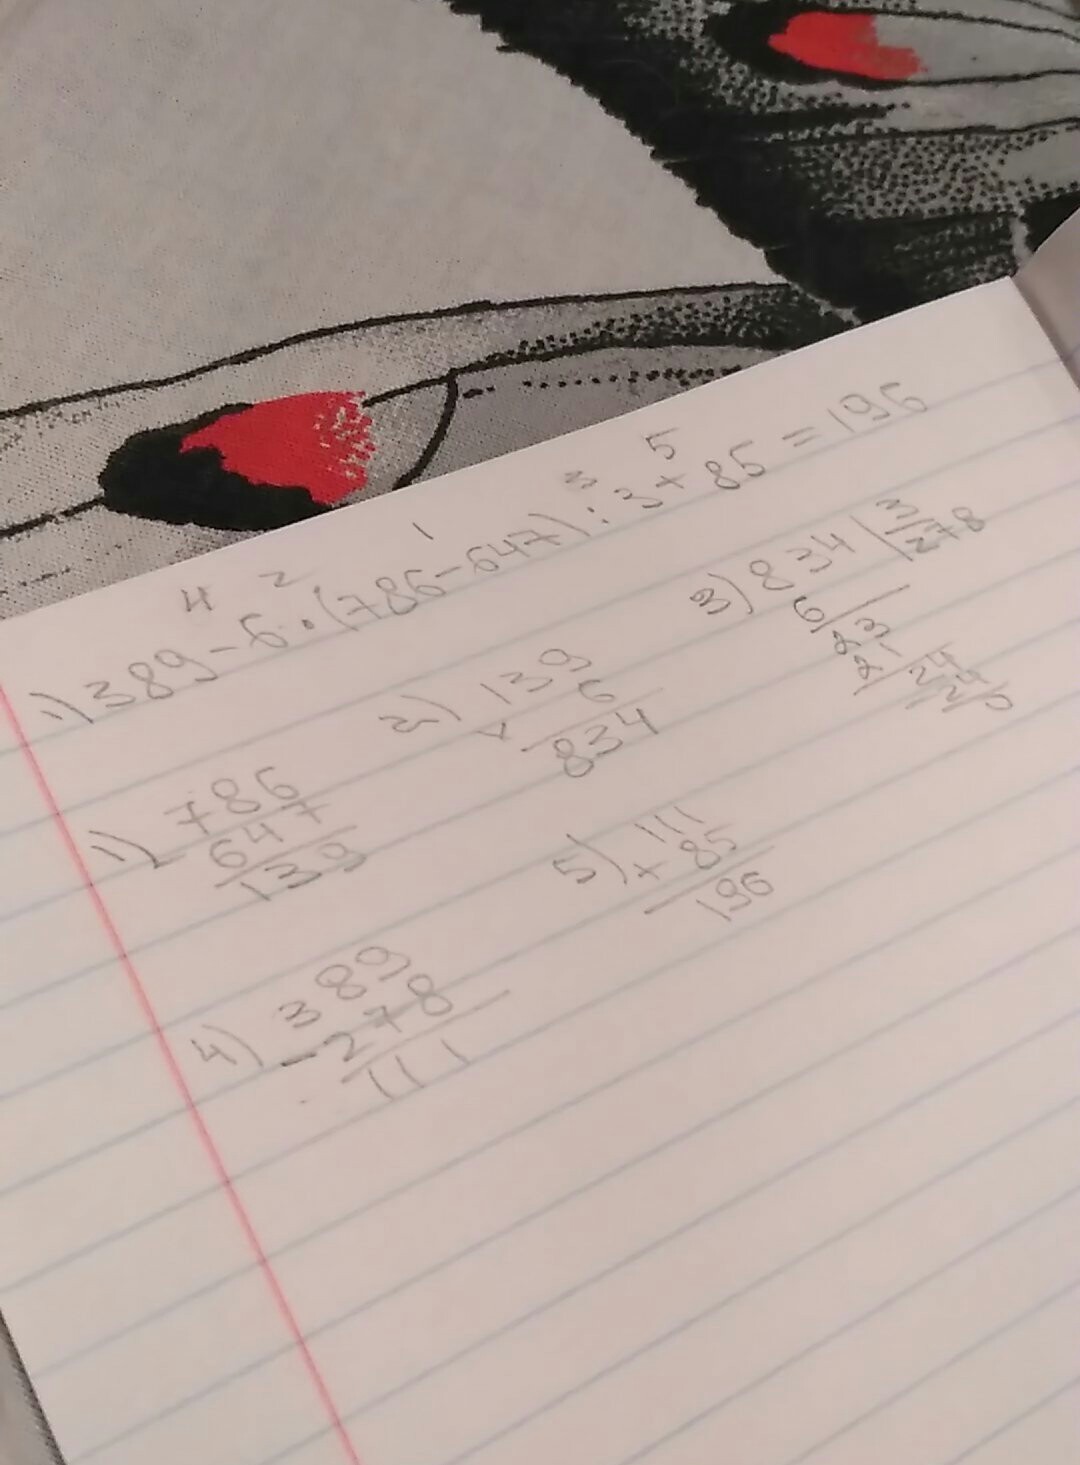 4 2 1 3 5
1) 389 - 6 · (786 - 647) : 3 + 85 = 196
1) 786
- 647
139
2) 139
× 6
834
3) 834 | 3
6 | 278
23
21
24
24
0
4) 389
- 278
111
5) 111
+ 85
196